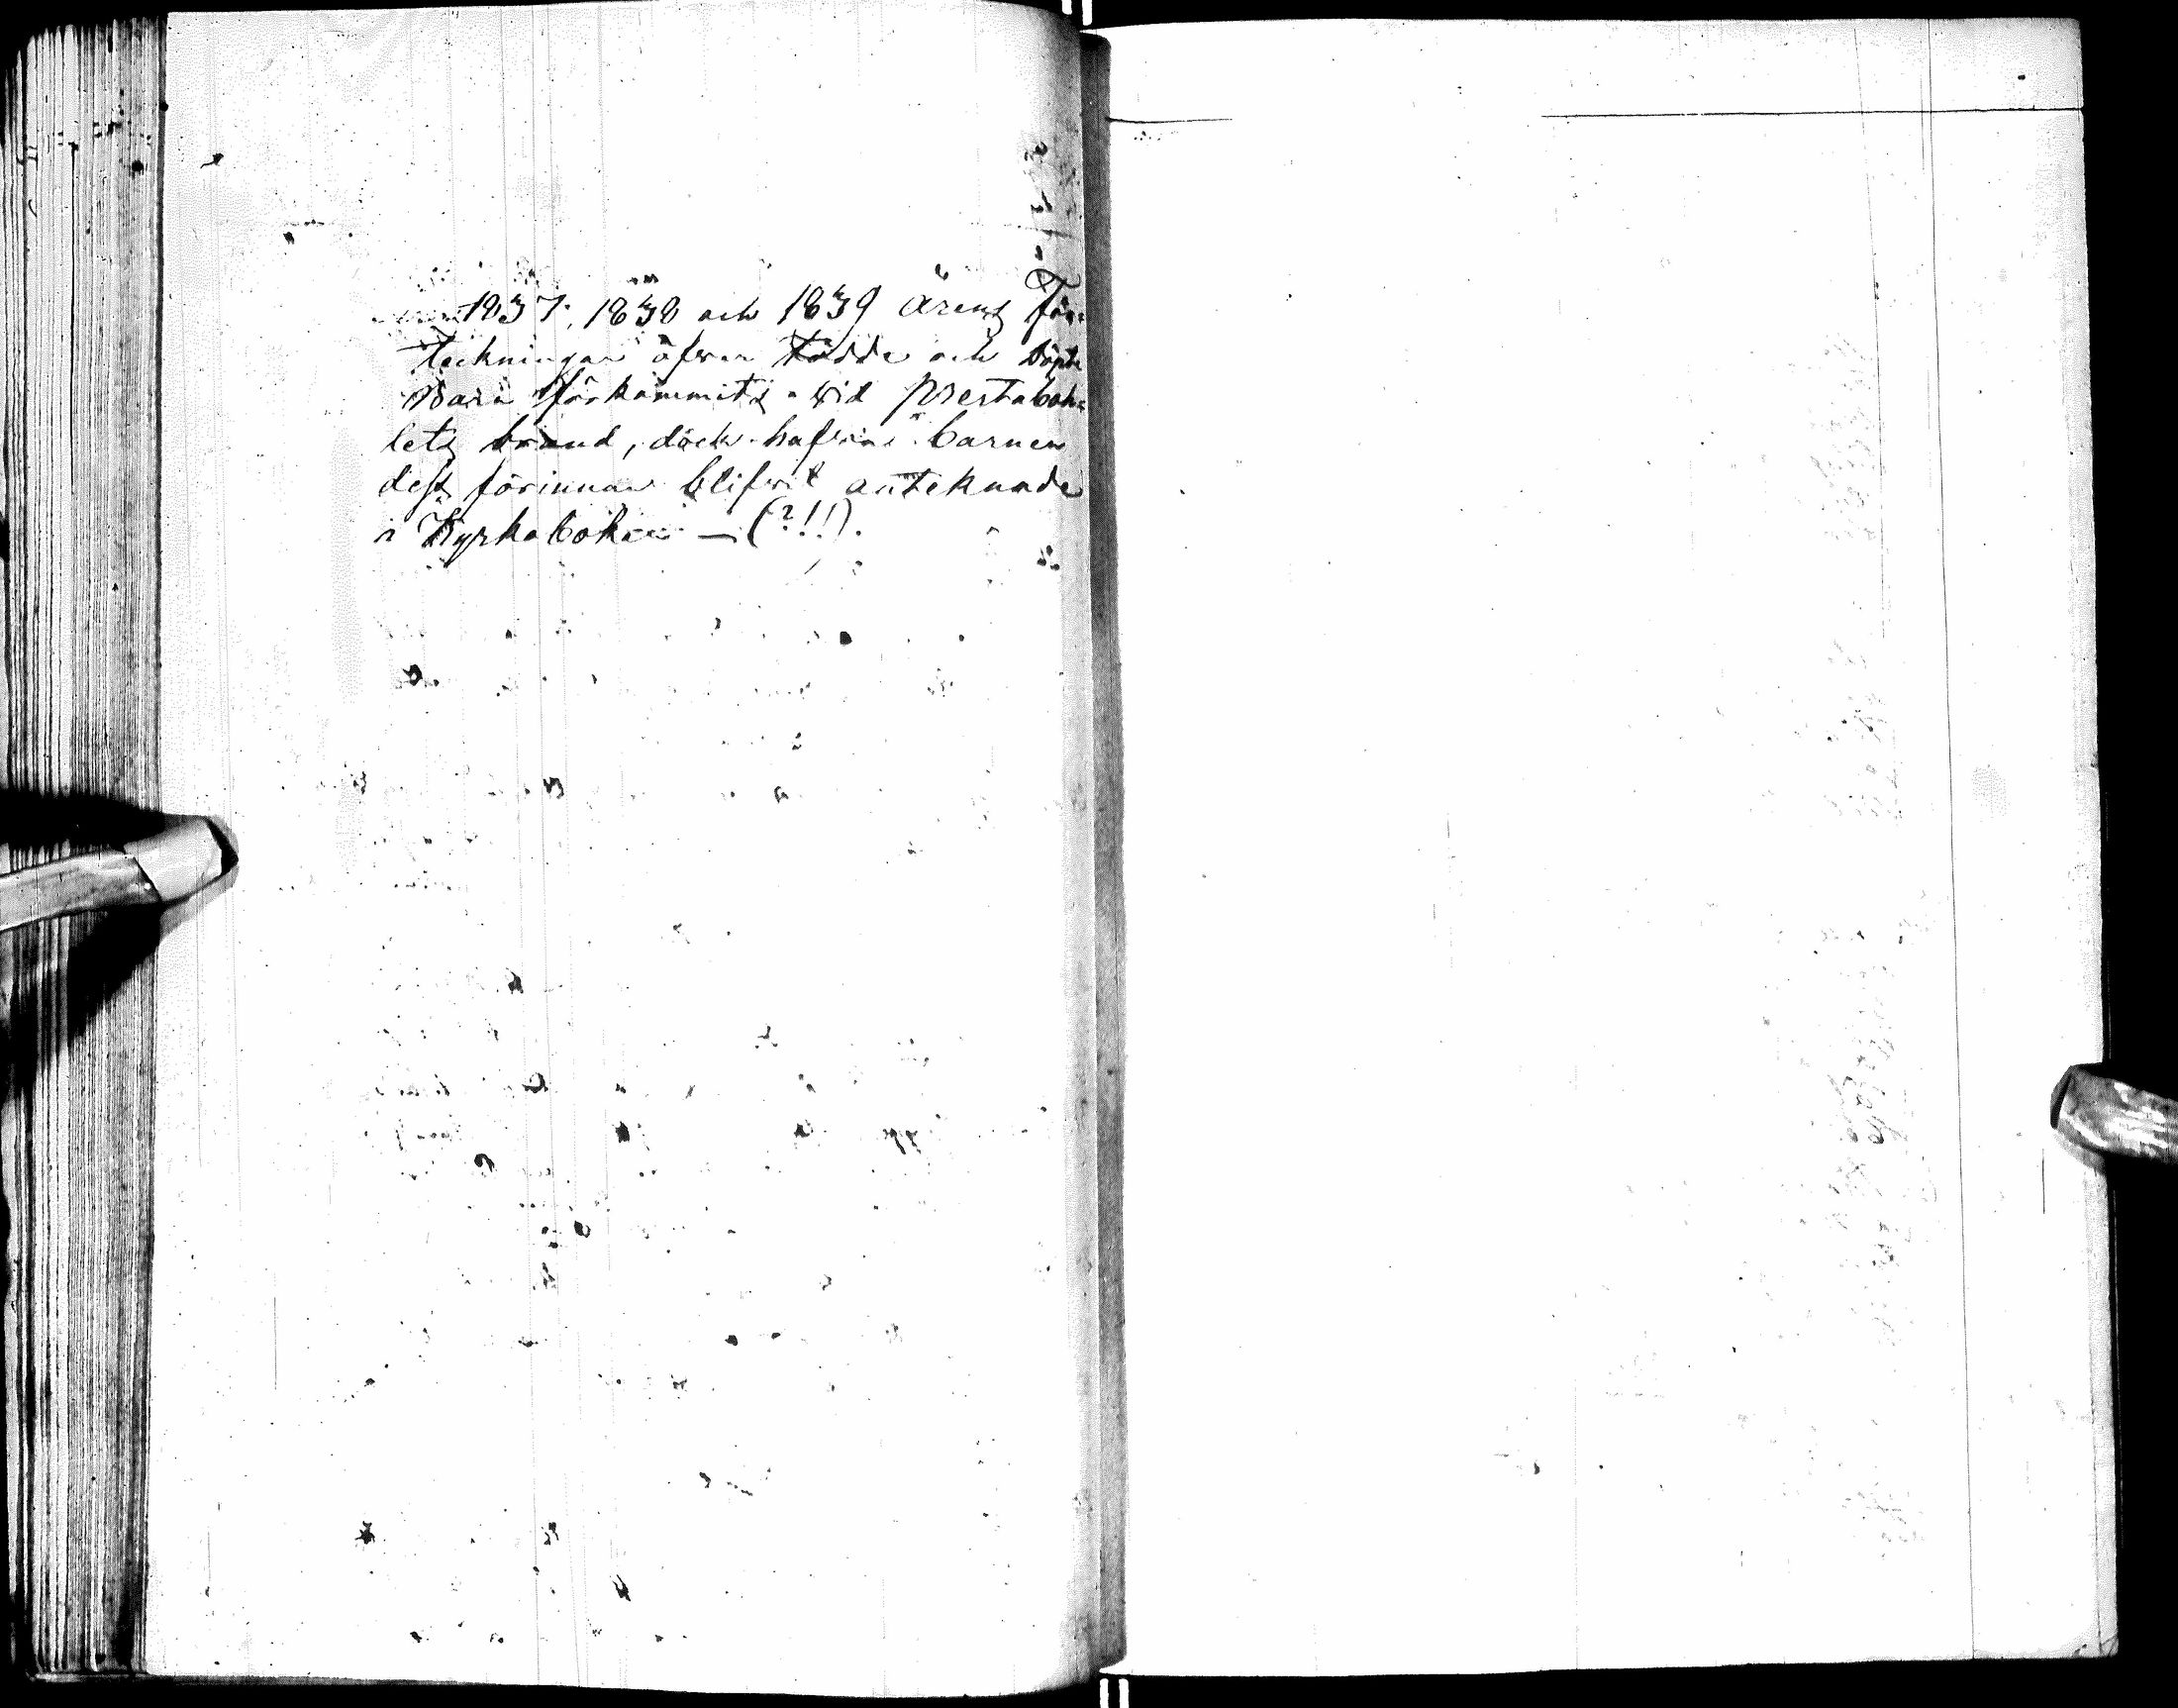 1837, 1838 och 1839 årens För-
teckningar öfver födde och döpte
Barn förkommitz wid Prestaboh-
letz brand, dock hafwa barnen
dess förinnan blifwit anteknade
i Kyrkoboken — (?!!).